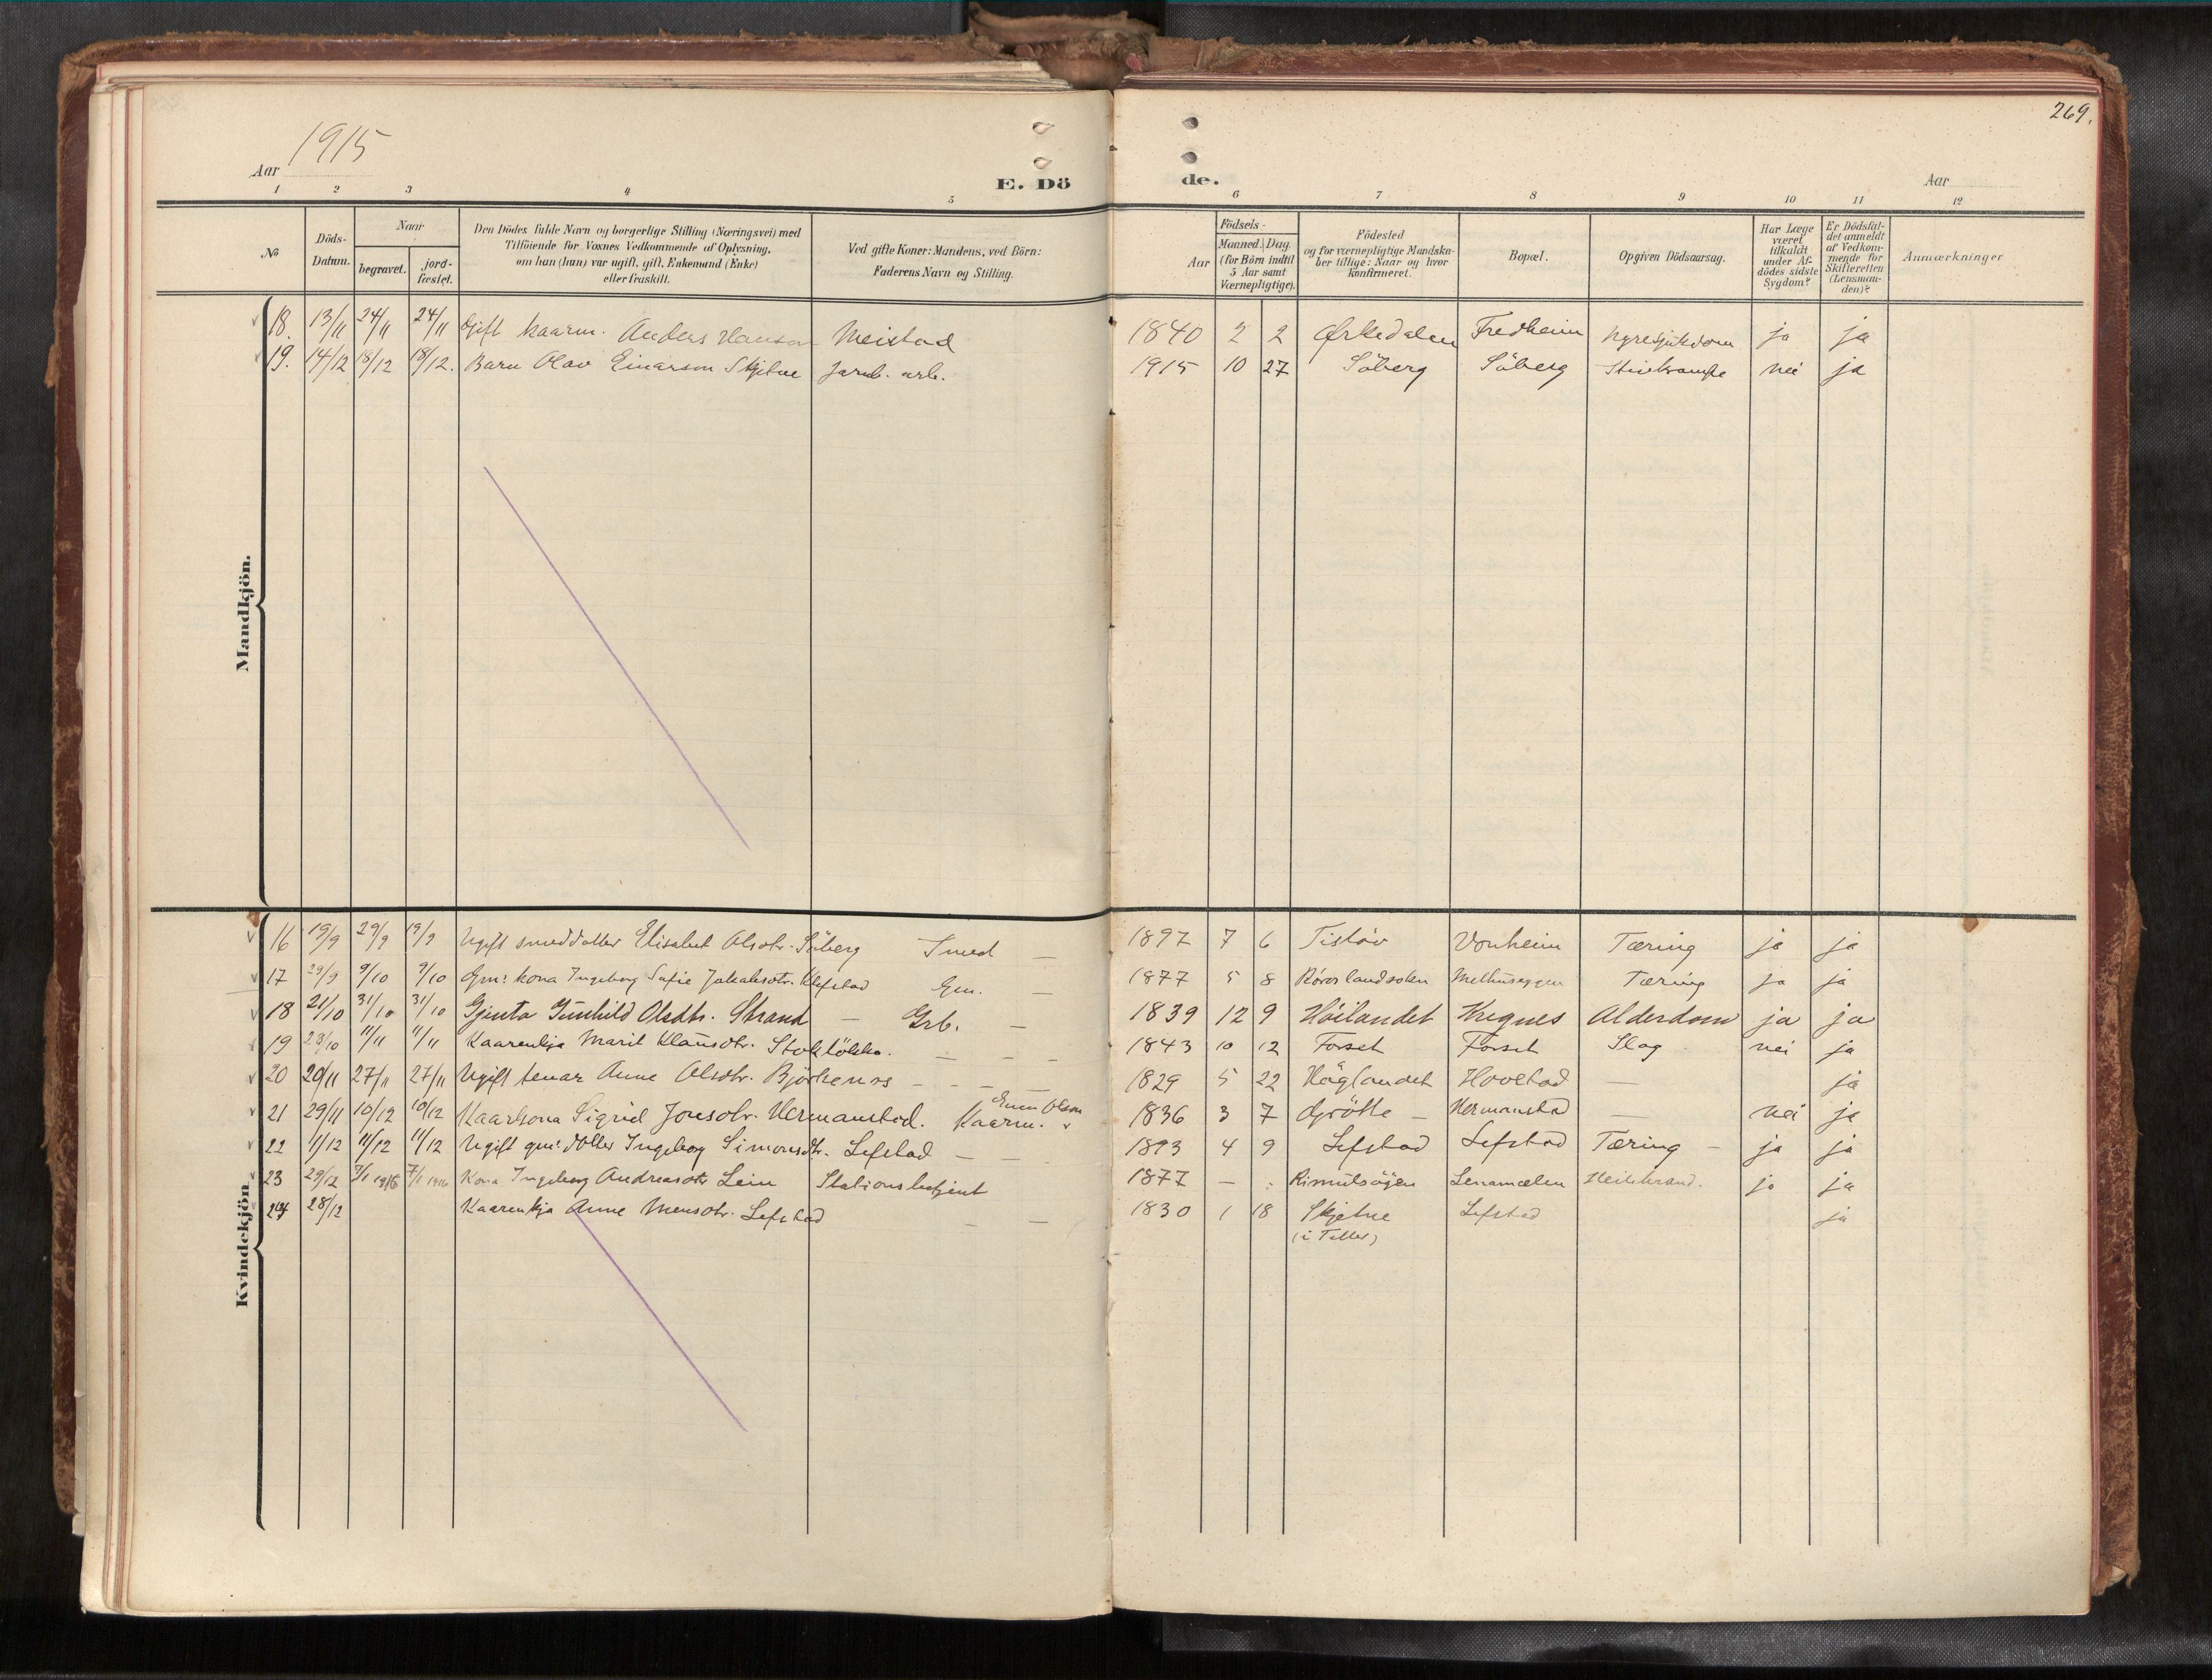 269.
Aar 1915
E. Dö de.
Aar
1 2 3 4 5 6 7 8 9 10 11 12
No
Döds-Datum.
Naar
begravet.
jord-fæstet.
Den Dödes fulde Navn og borgerlige Stilling (Næringsvei) med
Tilföiende for Voxnes Vedkommende af Oplysning,
om han (hun) var ugift, gift, Enkemand (Enke)
eller fraskilt.
Ved gifte Koner: Mandens, ved Börn:
Faderens Navn og Stilling.
Aar
Födsels-
Maaned. Dag.
(for Börn indtil
5 Aar samt
Værnepligtige).
Födested
og for værnepligtige Mandska-
ber tillige: Naar og hvor
konfirmeret.
Bopæl.
Opgiven Dödsaarsag.
Har Læge
været
tilkaldt
under Af-
dödes sidste
Sygdom?
Er Dödsfal-
det anmeldt
af Vedkom-
mende for
Skifteretten
(Lensman-
den)?
Anmærkninger
Mandkjön.
18. 13/11 24/11 24/11 Gift kaarm. Anders Hanson Meistad 1840 2 2 Ørkedalen Fredheim Nyresjukdom ja ja
19. 14/12 18/12 18/12. Barn Olav Einarson Skjetne Jarnb. arb. 1915 10 27 Söberg Söberg nei ja
Kvindekjön.
16 19/9 29/9 19/9 Ugift smeddatter Elisabet Olsdtr. Söberg Smed — 1897 7 6 Vonheim Tæring ja ja
17 29/9 9/10 9/10 Gm: kona Ingeborg Sofie Jakobsdtr. Klefstad Gm. — 1877 5 8 Tæring ja ja
18 21/10 31/10 31/10 Gjenta Gunhild Olsdtr. Strand — Grb. — 1839 12 9 Höilandet Kregnes Alderdom ja ja
19 23/10 11/11 11/11 Kaarenkja Marit Klausdtr. — — — 1843 10 12 Forset Forset Slag nei ja
20 20/11 27/11 27/11 Ugift Anne Olsdtr. — — — 1829 5 22 Höglandet Hovstad — ja
21 29/11 10/12 10/12 Kaarkona Sigrid Jonsdtr. Hermanstad. Kaarm. Olson 1836 3 7 Grötte — Hermanstad — nei ja
22 1/12 11/12 11/12 Ugift gm: dotter Ingeborg Simonsdtr. Lefstad — — 1893 4 9 Lefstad Lefstad Tæring — ja ja
23 29/12 7/1 1916 7/1 1916 Kona Ingeborg Andreasdtr. Lein Stationsbetjent 1877 — Rimulsöyen ja ja
24 28/12 Kaarenkja Anne Lefstad — — 1830 1 18 Skjetne Lefstad ja
(i Tiller)